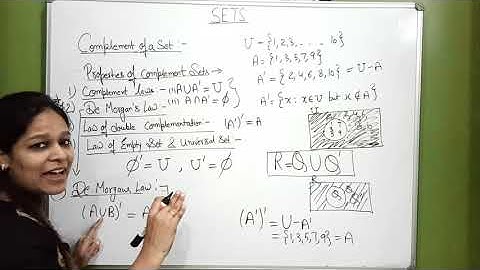 SETS
Complement of a Set :-
Properties of Complement Sets →
1) Complement laws :- (i) A∪A' = U
(ii) A∩A' = ϕ
2) De Morgan's Law :-
Law of double complementation - (A')' = A
Law of Empty Set & Universal Set -
ϕ' = U , U' = ϕ
De Morgans Law :-
(A∪B)' = A
U - {1,2,3, . . . . . 10}
A = {1,3,5,7,9}
A' = {2,4,6,8,10} = U-A
A' = {x : x∈U but x∉A}
R = Q ∪ Q'
(A')' = U-A'
= {1,3,5,7,9} = A